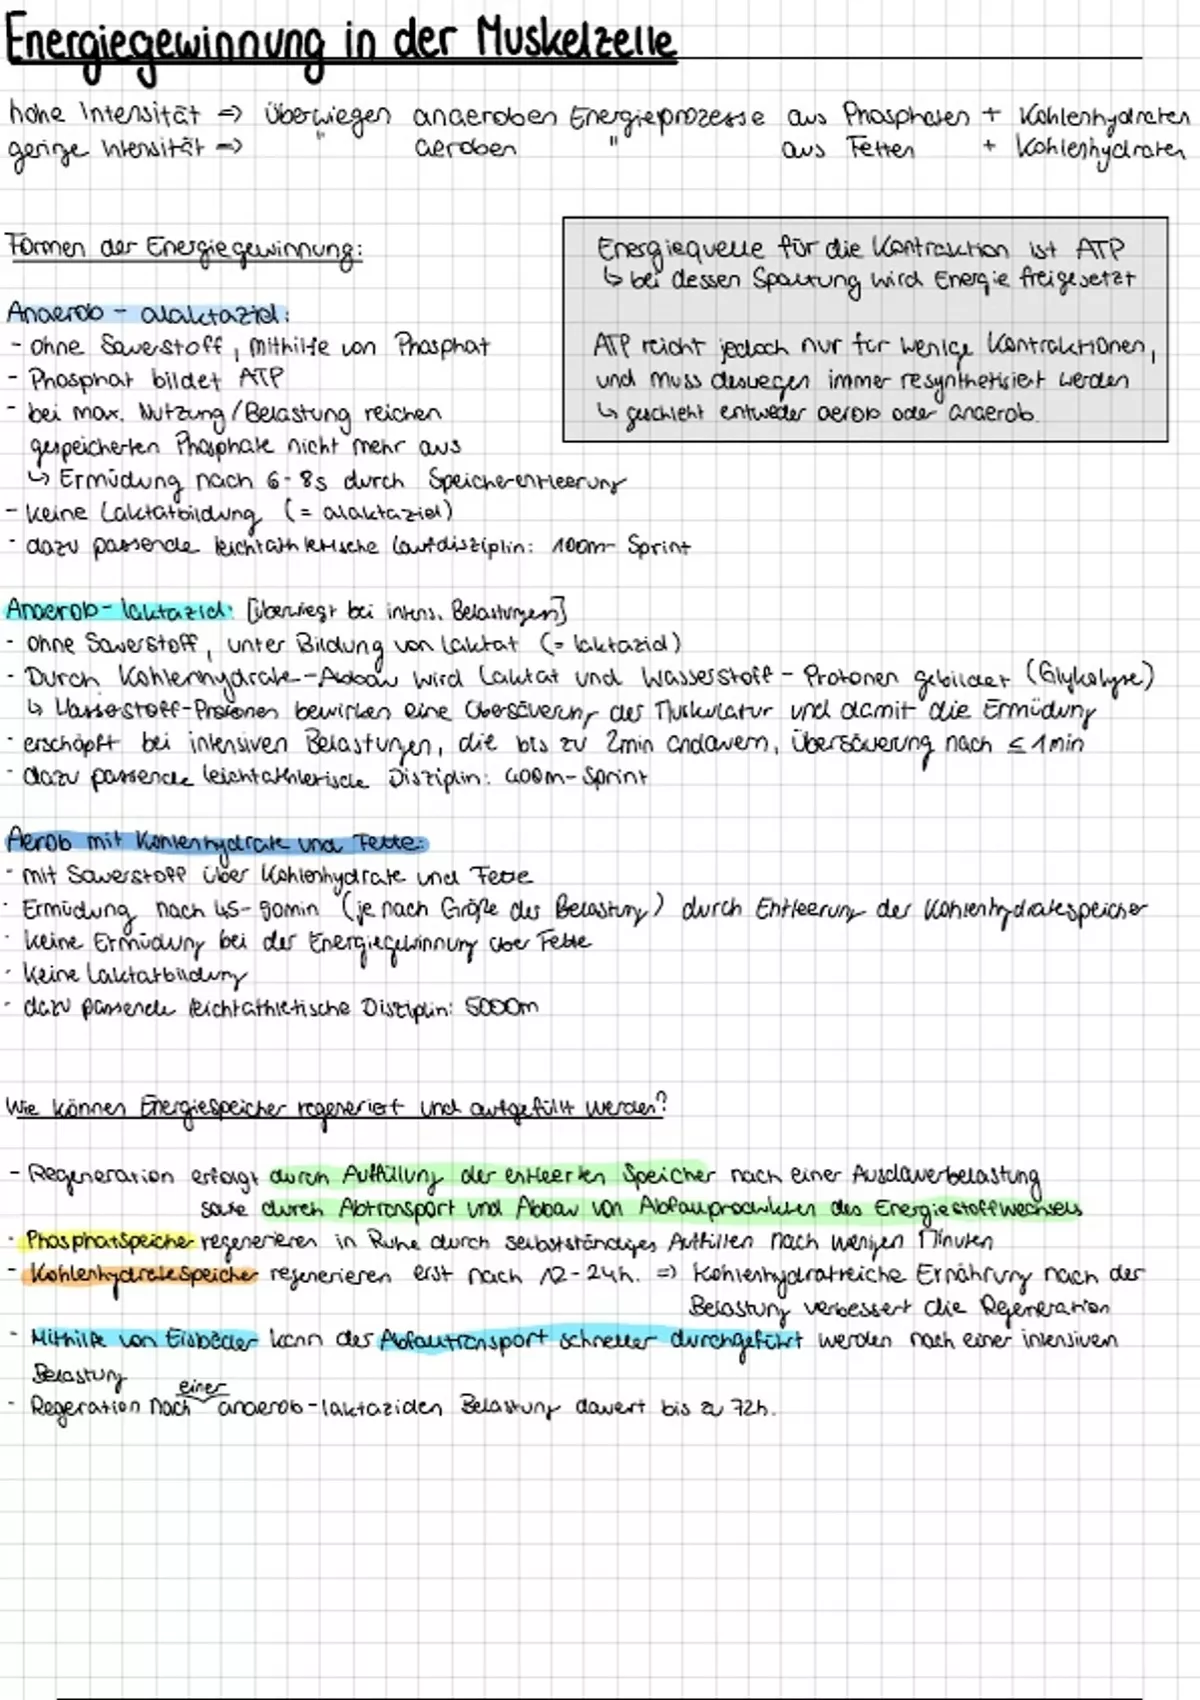 Energiegewinnung in der Muskelzelle
hohe Intensität => überwiegen anaeroben Energieprozesse aus Phosphaten + Kohlenhydraten
geringe Intensität => " aeroben " aus Fetten + Kohlenhydraten
Formen der Energiegewinnung:
Energiequelle für die Kontraktion ist ATP
↳ bei dessen Spaltung wird Energie freigesetzt
ATP reicht jedoch nur für wenige Kontraktionen,
und muss deswegen immer resynthetisiert werden
↳ geschieht entweder aerob oder anaerob.
Anaerob - alaktazid:
- ohne Sauerstoff, mithilfe von Phosphat
- Phosphat bildet ATP
- bei max. Nutzung/Belastung reichen
gespeicherten Phosphate nicht mehr aus
↳ Ermüdung nach 6-8s durch Speicherentleerung
- keine Laktatbildung (= alaktazid)
- dazu passende leichtathletische Laufdisziplin: 100m-Sprint
Anaerob-laktazid: [überwiegt bei intens. Belastungen]
- ohne Sauerstoff, unter Bildung von Laktat (= laktazid)
- Durch Kohlenhydrate-Abbau wird Laktat und Wasserstoff-Protonen gebildet (Glykolyse)
↳ Wasserstoff-Protonen bewirken eine Übersäuerung der Muskulatur und damit die Ermüdung
- erschöpft bei intensiven Belastungen, die bis zu 2min andauern, Übersäuerung nach ≤ 1min
- dazu passende leichtathletische Disziplin: 400m-Sprint
Aerob mit Kohlenhydrate und Fette:
- mit Sauerstoff über Kohlenhydrate und Fette
- Ermüdung nach 45-90min (je nach Größe der Belastung) durch Entleerung der Kohlenhydratespeicher
- keine Ermüdung bei der Energiegewinnung über Fette
- keine Laktatbildung
- dazu passende leichtathletische Disziplin: 5000m
Wie können Energiespeicher regeneriert und aufgefüllt werden?
- Regeneration erfolgt durch Auffüllung der entleerten Speicher nach einer Ausdauerbelastung
sowie durch Abtransport und Abbau von Abfallprodukten des Energiestoffwechsels
- Phosphatspeicher regenerieren in Ruhe durch selbstständiges Auffüllen nach wenigen Minuten
- Kohlenhydratespeicher regenerieren erst nach 12-24h. => Kohlenhydratreiche Ernährung nach der
Belastung verbessert die Regeneration
- Mithilfe von Eisbäder kann der Abfalltransport schneller durchgeführt werden nach einer intensiven
Belastung
- Regeration nach einer anaerob-laktaziden Belastung dauert bis zu 72h.